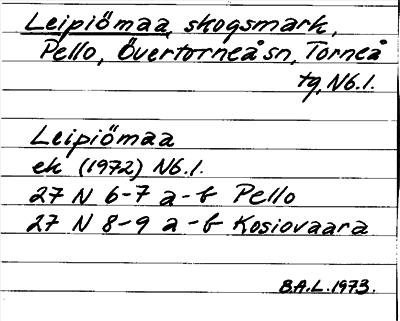 Leipiömaa, skogsmark,
Pello, Övertorneå sn, Torneå
tg, Nb.l.
Leipiömaa
ek (1972) Nb.l.
27 N 6-7 a-b Pello
27 N 8-9 a-b Kosiovaara
B.A.L. 1973.